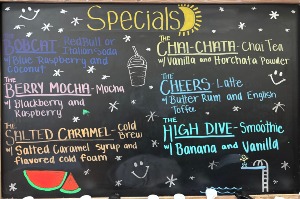 Specials
THE
BOBCAT - Red Bull or
Italian Soda
w/ Blue Raspberry and
Coconut
THE
BERRY MOCHA - Mocha
w/ Blackberry and
Raspberry
THE
SALTED CARAMEL - Cold
Brew
w/ Salted Caramel Syrup and
flavored cold foam
THE
CHAI-CHATA - Chai Tea
w/ Vanilla and Horchata Powder
THE
CHEERS - Latte
w/ Butter Rum and English
Toffee
THE
HIGH DIVE - Smoothie
w/ Banana and Vanilla